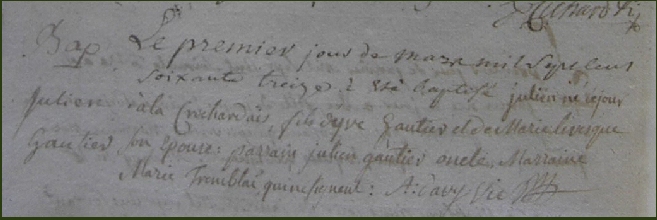 Richard
Bap Le premier jour de mars mil sept cent
soixante treize a esté baptisé julien né ce jour
Julien à la Crichardais, fils d'yve Gautier et de Marie livesque
Gautier son Epouse: parrain julien gautier oncle, Marraine
Marie Tremblai qui ne signent: A: davy Vic